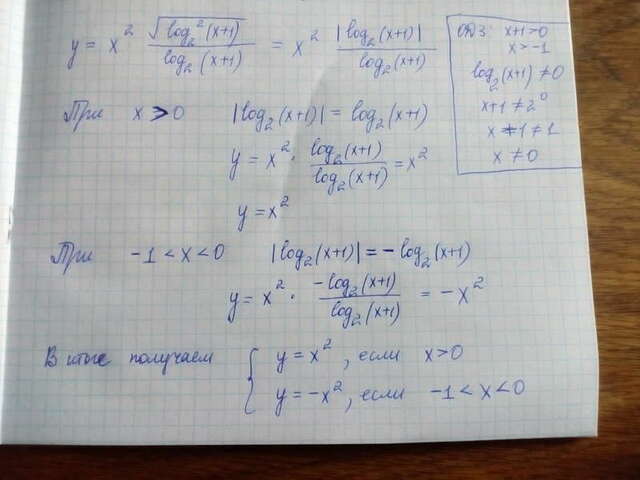 y = x² √(log₂²(x+1)) / log₂(x+1) = x² |log₂(x+1)| / log₂(x+1)
ОДЗ: x+1>0
x>-1
log₂(x+1) ≠0
x+1 ≠ 2⁰
x+1 ≠ 1
x ≠ 0
При x > 0 |log₂(x+1)| = log₂(x+1)
y = x² · log₂(x+1) / log₂(x+1) = x²
y = x²
При -1 < x < 0 |log₂(x+1)| = - log₂(x+1)
y = x² · -log₂(x+1) / log₂(x+1) = -x²
В итоге получаем { y = x², если x>0
y = -x², если -1 < x < 0